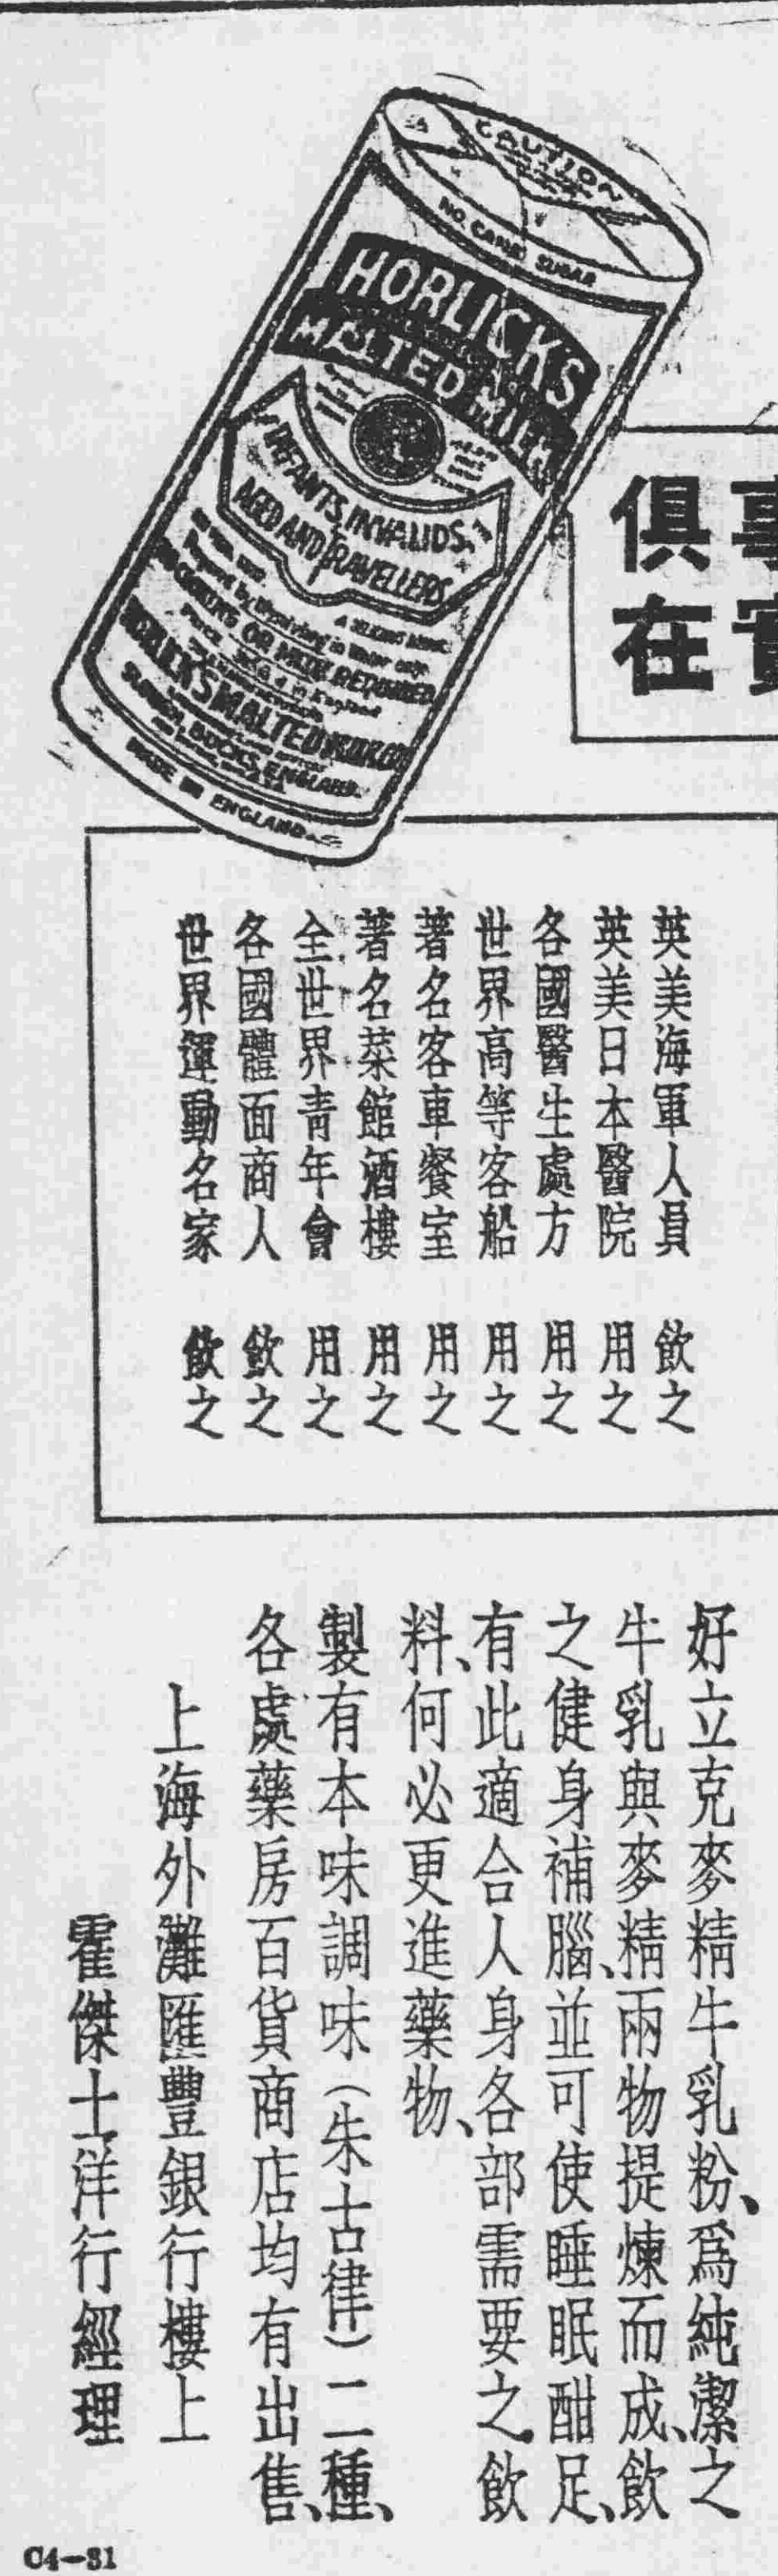 CAUTION
NO CANE SUGAR
HORLICKS
MALTED MILK
INFANTS, INVALIDS,
AGED AND TRAVELLERS
NO COOKING OR MILK REQUIRED
HORLICK'S MALTED MILK CO
SLOUGH, BUCKS, ENGLAND.
MADE IN ENGLAND
事實
俱在
英美海軍人員 飲之
英美日本醫院 用之
各國醫生處方 用之
世界高等客船 用之
著名客車餐室 用之
著名菜館酒樓 用之
全世界青年會 用之
各國體面商人 飲之
世界運動名家 飲之
好立克麥精牛乳粉、爲純潔之
牛乳與麥精兩物提煉而成、飲
之健身補腦、並可使睡眠酣足、
有此適合人身各部需要之飲
料、何必更進藥物、
製有本味調味(朱古律)二種、
各處藥房百貨商店均有出售、
上海外灘匯豐銀行樓上
霍傑士洋行經理
C4-31